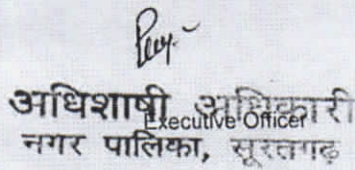 अधिशाषी अधिकारी
Executive Officer
नगर पालिका, सूरतगढ़